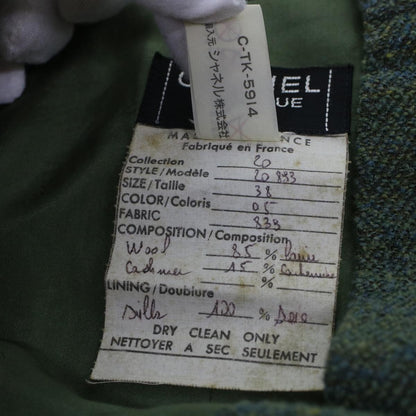 C-TK-5914
入元 シャネル株式会社
NEL
QUE
MA NCE
Fabriqué en France
Collection 20
STYLE/Modèle 20 833
SIZE/Taille 38
COLOR/Coloris 05
FABRIC 833
COMPOSITION/Composition
Wool 85 % Laine
Cashmer 15 % Cachemire
%
LINING/Doublure
Silk 100 % Soie
DRY CLEAN ONLY
NETTOYER A SEC SEULEMENT